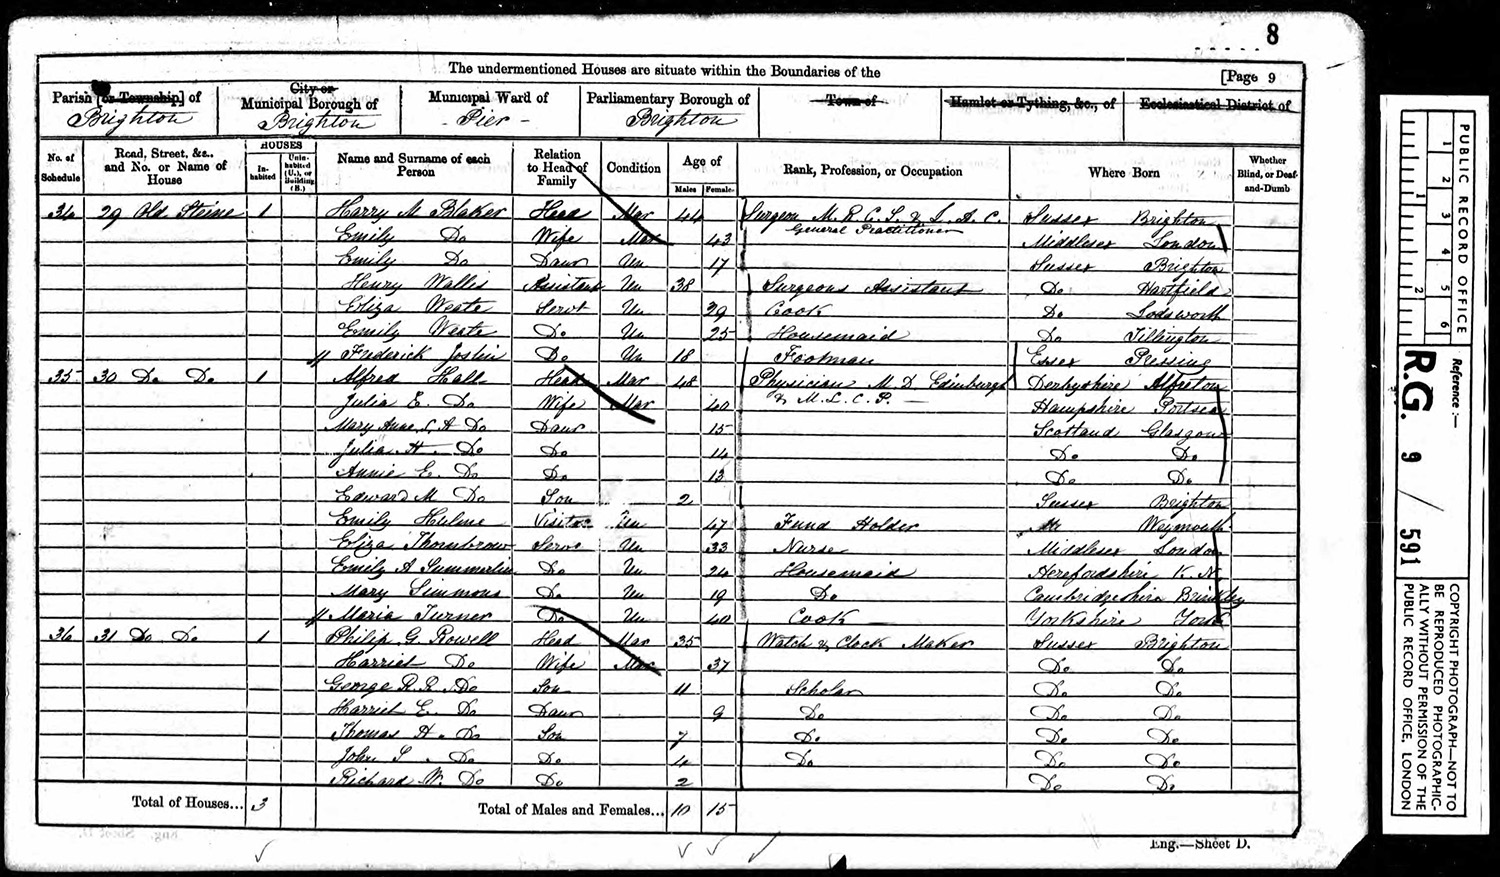 8
The undermentioned Houses are situate within the Boundaries of the [Page 9
Parish [or Township] of City or Municipal Borough of Municipal Ward of Parliamentary Borough of Town of Hamlet or Tything, &c., of Ecclesiastical District of
Brighton Brighton - Pier - Brighton
No. of Schedule Road, Street, &c., and No. or Name of House HOUSES In-habited Unin-habited (U.), or Building (B.) Name and Surname of each Person Relation to Head of Family Condition Age of Males Females Rank, Profession, or Occupation Where Born Whether Blind, or Deaf-and-Dumb
34 29 Old Steine 1 Harry M Blaker Head Mar 44 Surgeon M. R. C. S. & L. A. C. Sussex Brighton
General Practitioner
Emily Do Wife Mar 43 Middlesex London
Emily Do Daur Un 17 Sussex Brighton
Henry Wallis Assistant Un 38 Surgeons Assistant Do Hartfield
Eliza Weste Servt Un 29 Cook Do Lodsworth
Emily Weste Do Un 25 Housemaid Do Tillington
Frederick Joslin Do Un 18 Footman Essex
35 30 Do Do 1 Alfred Hall Head Mar 48 Physician M. D Edinburgh Derbyshire Alfreton
Julia E. Do Wife Mar 40 & M. L. C. P. Hampshire Portsea
Mary Anne Do Daur 15 Scotland Glasgow
Julia H. Do Do 14 Do Do
Annie E. Do Do 13 Do Do
Edward M Do Son 2 Sussex Brighton
Emily Hulme Visitor Un 47 Fund Holder Weymouth
Eliza Thornbrow Serve Un 33 Nurse Middlesex London
Emily A Summerlin Do Un 24 Housemaid Herefordshire K. N.
Mary Simmons Do Un 19 Do Cambridgeshire Brinkley
Maria Turner Do Un 40 Cook Yorkshire York
36 31 Do Do 1 Philip G. Rowell Head Mar 35 Watch & Clock Maker Sussex Brighton
Harriet Do Wife Mar 37 Do Do
George R. R. Do Son 11 Scholar Do Do
Harriet E. Do Daur 9 Do Do Do
Thomas H. Do Son 7 Do Do Do
John S. Do Do 4 Do Do Do
Richard W. Do Do 2 Do Do
Total of Houses... 3 Total of Males and Females... 10 15
Eng.—Sheet D.
PUBLIC RECORD OFFICE
1 2 3 4 5 6
1 2
Reference :—
R.G. 9 / 591
COPYRIGHT PHOTOGRAPH—NOT TO
BE REPRODUCED PHOTOGRAPHIC-
ALLY WITHOUT PERMISSION OF THE
PUBLIC RECORD OFFICE, LONDON